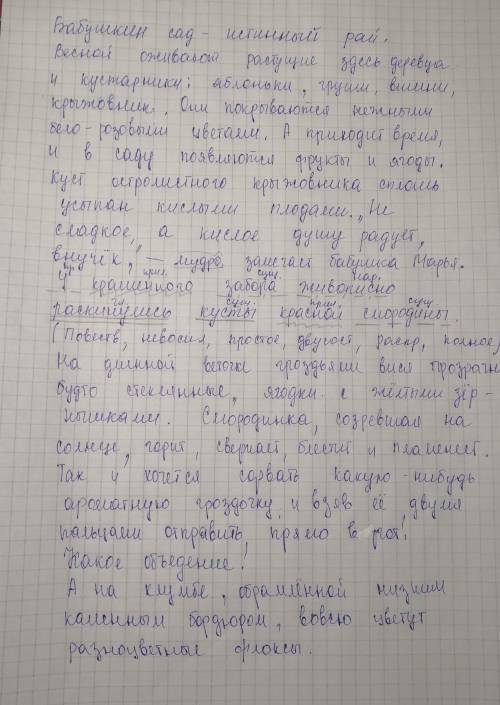 Бабушкин сад - истинный рай.
Весной оживают растущие здесь деревца
и кустарники: яблоньки, груши, вишни,
крыжовник. Они покрываются нежными
бело-розовыми цветами. А приходит время,
и в саду появляются фрукты и ягоды.
Куст остролистного крыжовника сплошь
усыпан кислыми плодами. „Не
сладкое, а кислое душу радует,
внучёк," — мудро замечает бабушка Марья.
пр. прил. сущ. нар.
У крашенного забора живописно
гл. сущ. прил. сущ.
раскинулись кусты красной смородины.
(Повеств, невоскл, простое, двусост, распр, полное)
На длинной веточке гроздьями вися прозрачн
будто стеклянные, ягодки с жёлтыми зёр-
нышками. Смородинка, созревшая на
солнце, горит, сверкает, блестит и пламенеет.
Так и хочется сорвать какую-нибудь
ароматную гроздочку и взяв её двумя
пальцами отправить прямо в рот!
Какое объедение!
А на клумбе, обрамлённой низким
каменным бордюром, вовсю цветут
разноцветные флоксы.